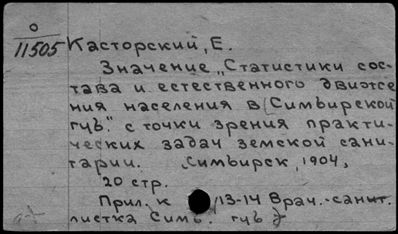 О
11505
Касторский, Е.
Значение „Статистики сос-
тава и естественного движе
ния населения в (Симбирской
губ." с точки зрения практи-
ческих задач земской сани-
тарии. Симбирск, 1904,
20 стр.
Прил. к 13-14 Врач.-санит.
листка Симб. губ